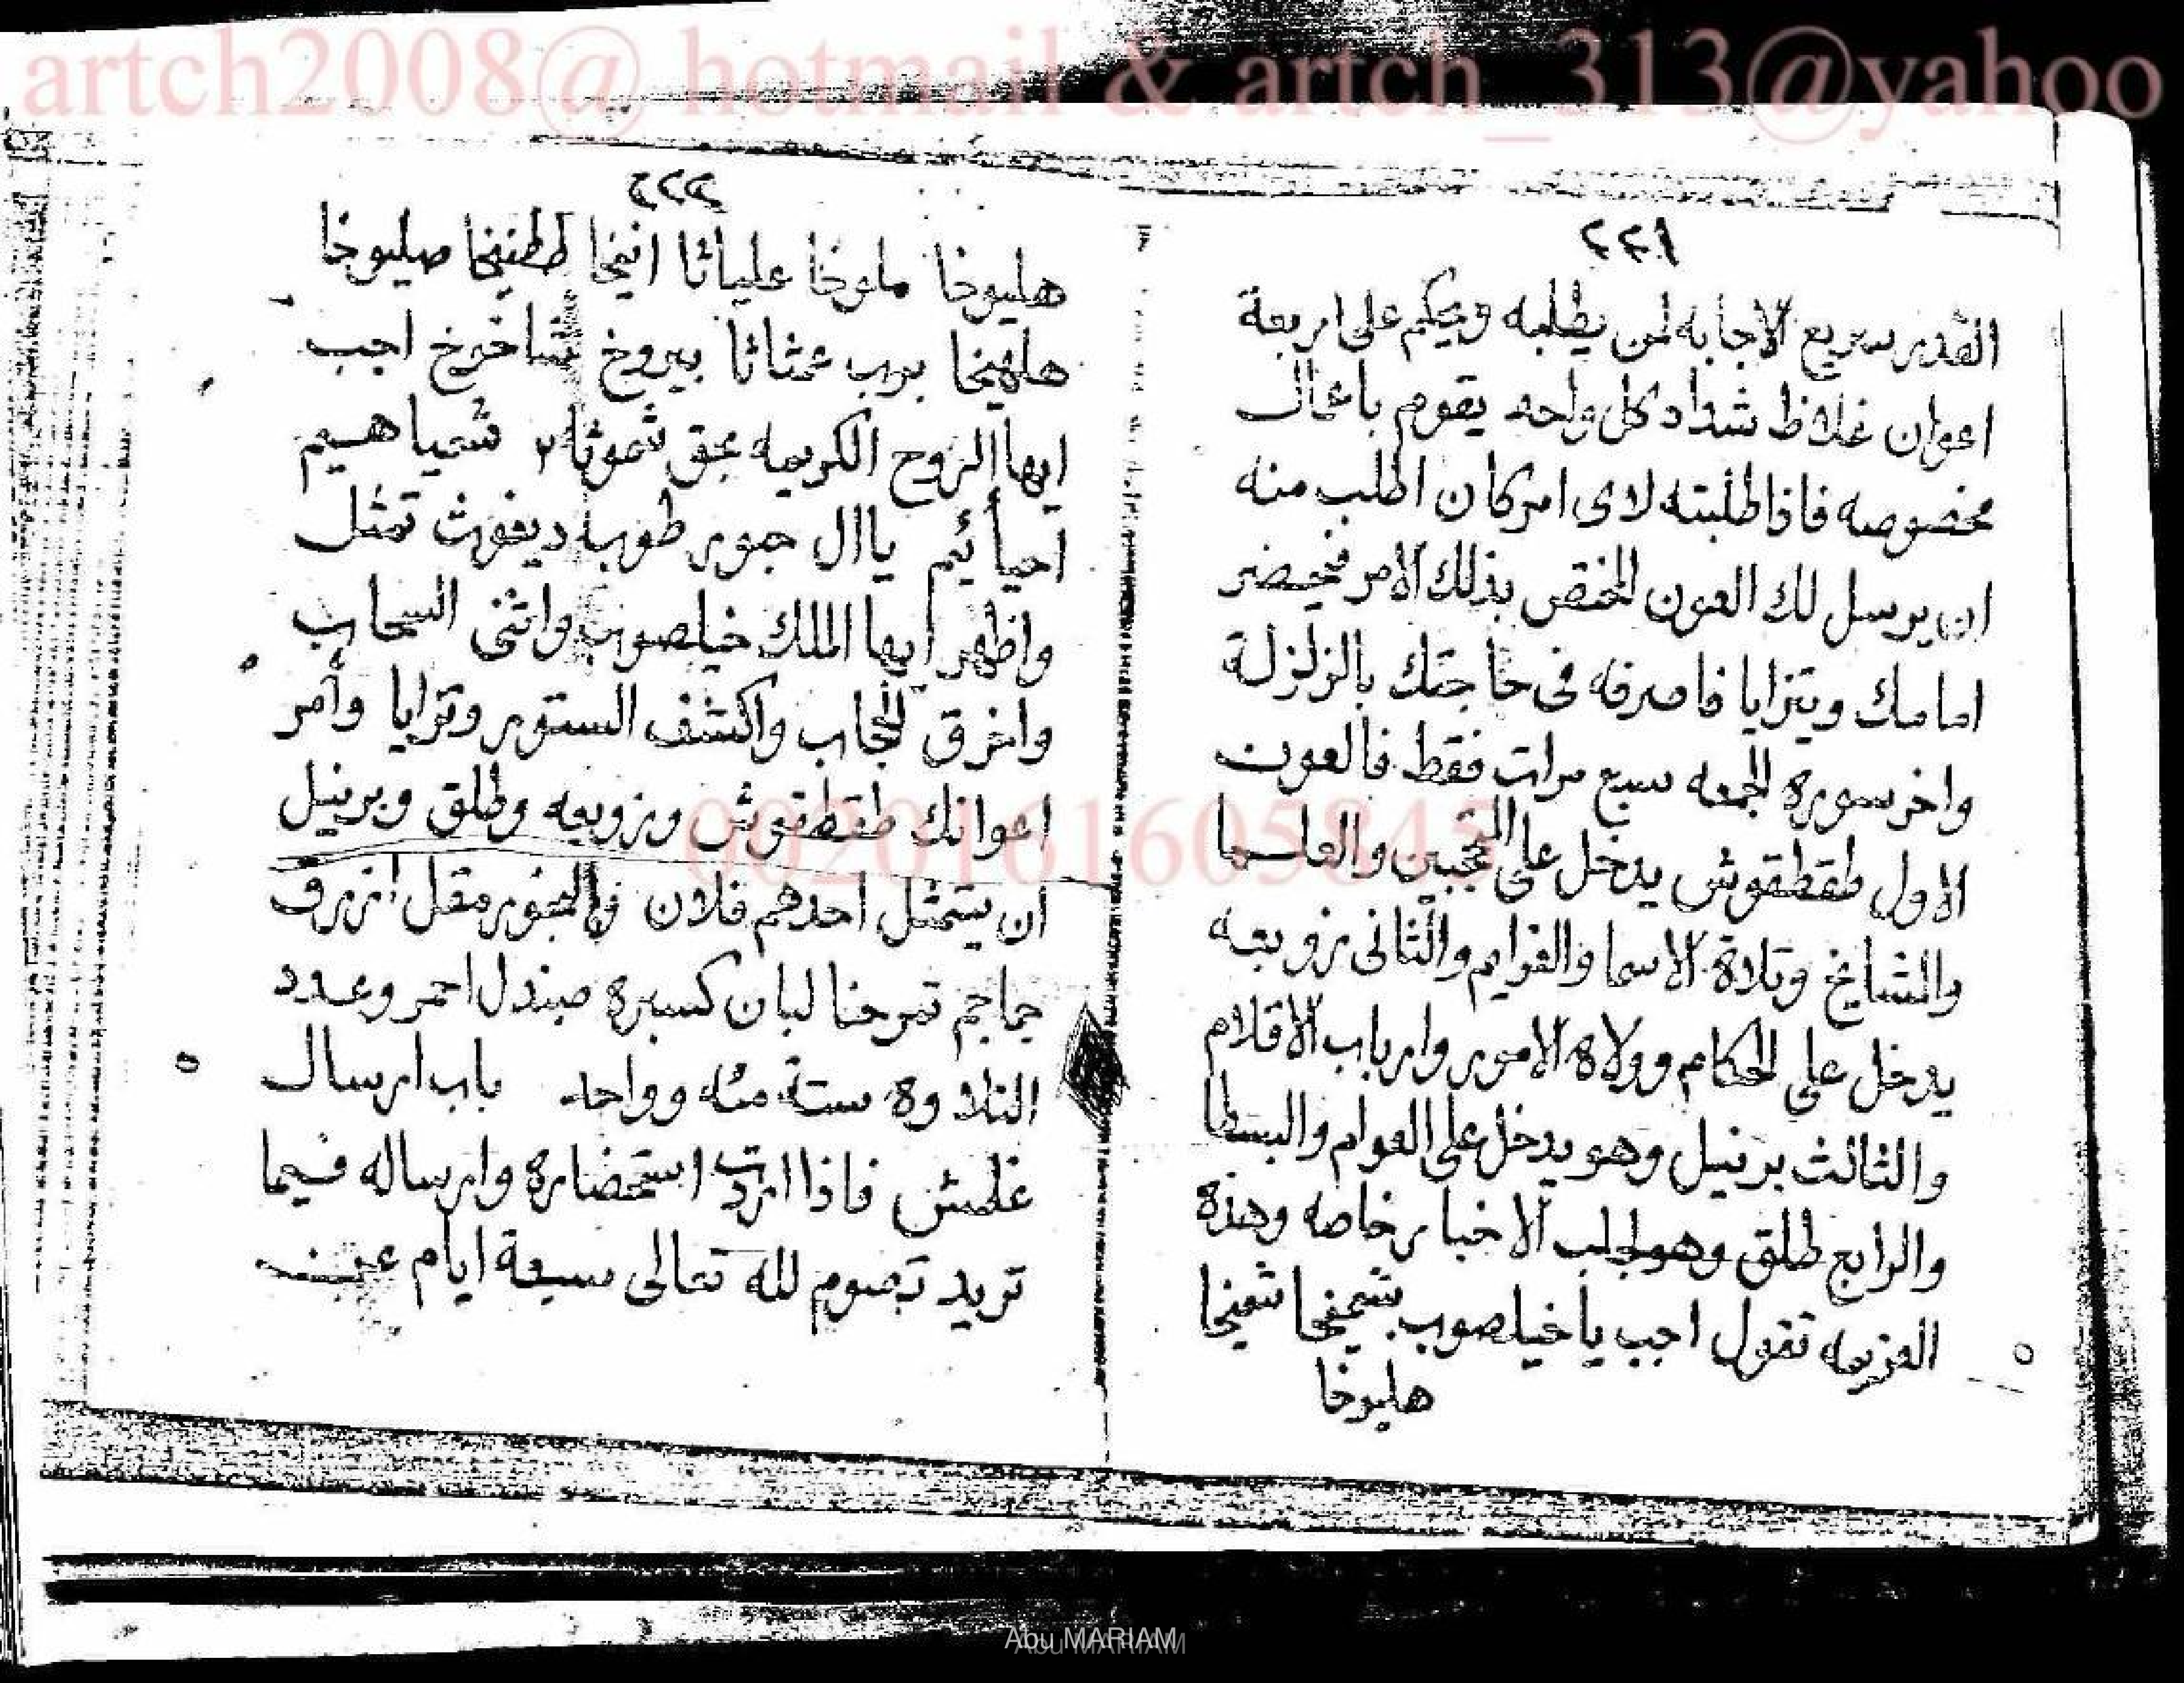 artch2008@ hotmail & artch_313@yahoo
٢٢١
القدر سريع الاجابه لمن يطلبه ويحكم على اربعة
اعوان غلاظ شداد كل واحد يقوم باعمال
مخصوصه فاذا طلبته لاى امر كان اطلب منه
ان يرسل لك العون المختص بذلك الامر فيحضر
امامك ويترايا فاصرفه فى حاجتك بالزلزلة
واخر سورة الجمعه سبع مرات فقط فالعون
الاول طقطقوش يدخل على المحجبين والعلما
والمشايخ وتلاوة الاسما والعزايم والثانى زوبعه
يدخل على الحكام وولاة الامور وارباب الاقلام
والثالث برنيل وهو يدخل على العوام والبسطا
والرابع طلق وهو لجلب الاخبار خاصه وهذه
العزيمه تقول اجب يا خيلصوب بشمخا شمخا
هليوخا
٢٢٢
هليوخا ملوخا علياثا انيخا طنيخا صليوخا
هلهيخا برب عثاثا بيروخ شاخرخ اجب
ايها الروح الكريمه بحق شموثا ٢ شميا هيم
احيا ئيم ياال جبور طوب ديفوث تمثل
واظهر ايها الملك خيلصوب واثنى السحاب
واخرق الحجاب واكشف الستور وترايا وأمر
اعوانك طقطقوش وزوبعه وطلق وبرنيل
ان يتمثل احدهم فلان والبخور مقل ازرق
جماجم تمرحنا لبان كسبره صندل احمر وعدد
التلاوه ستة مئه وواحد باب ارسال
غلمش فاذا اردت استحضاره وارساله فيما
تريد تصوم لله تعالى سبعة ايام عن
0020161605845
Abu MARIAM